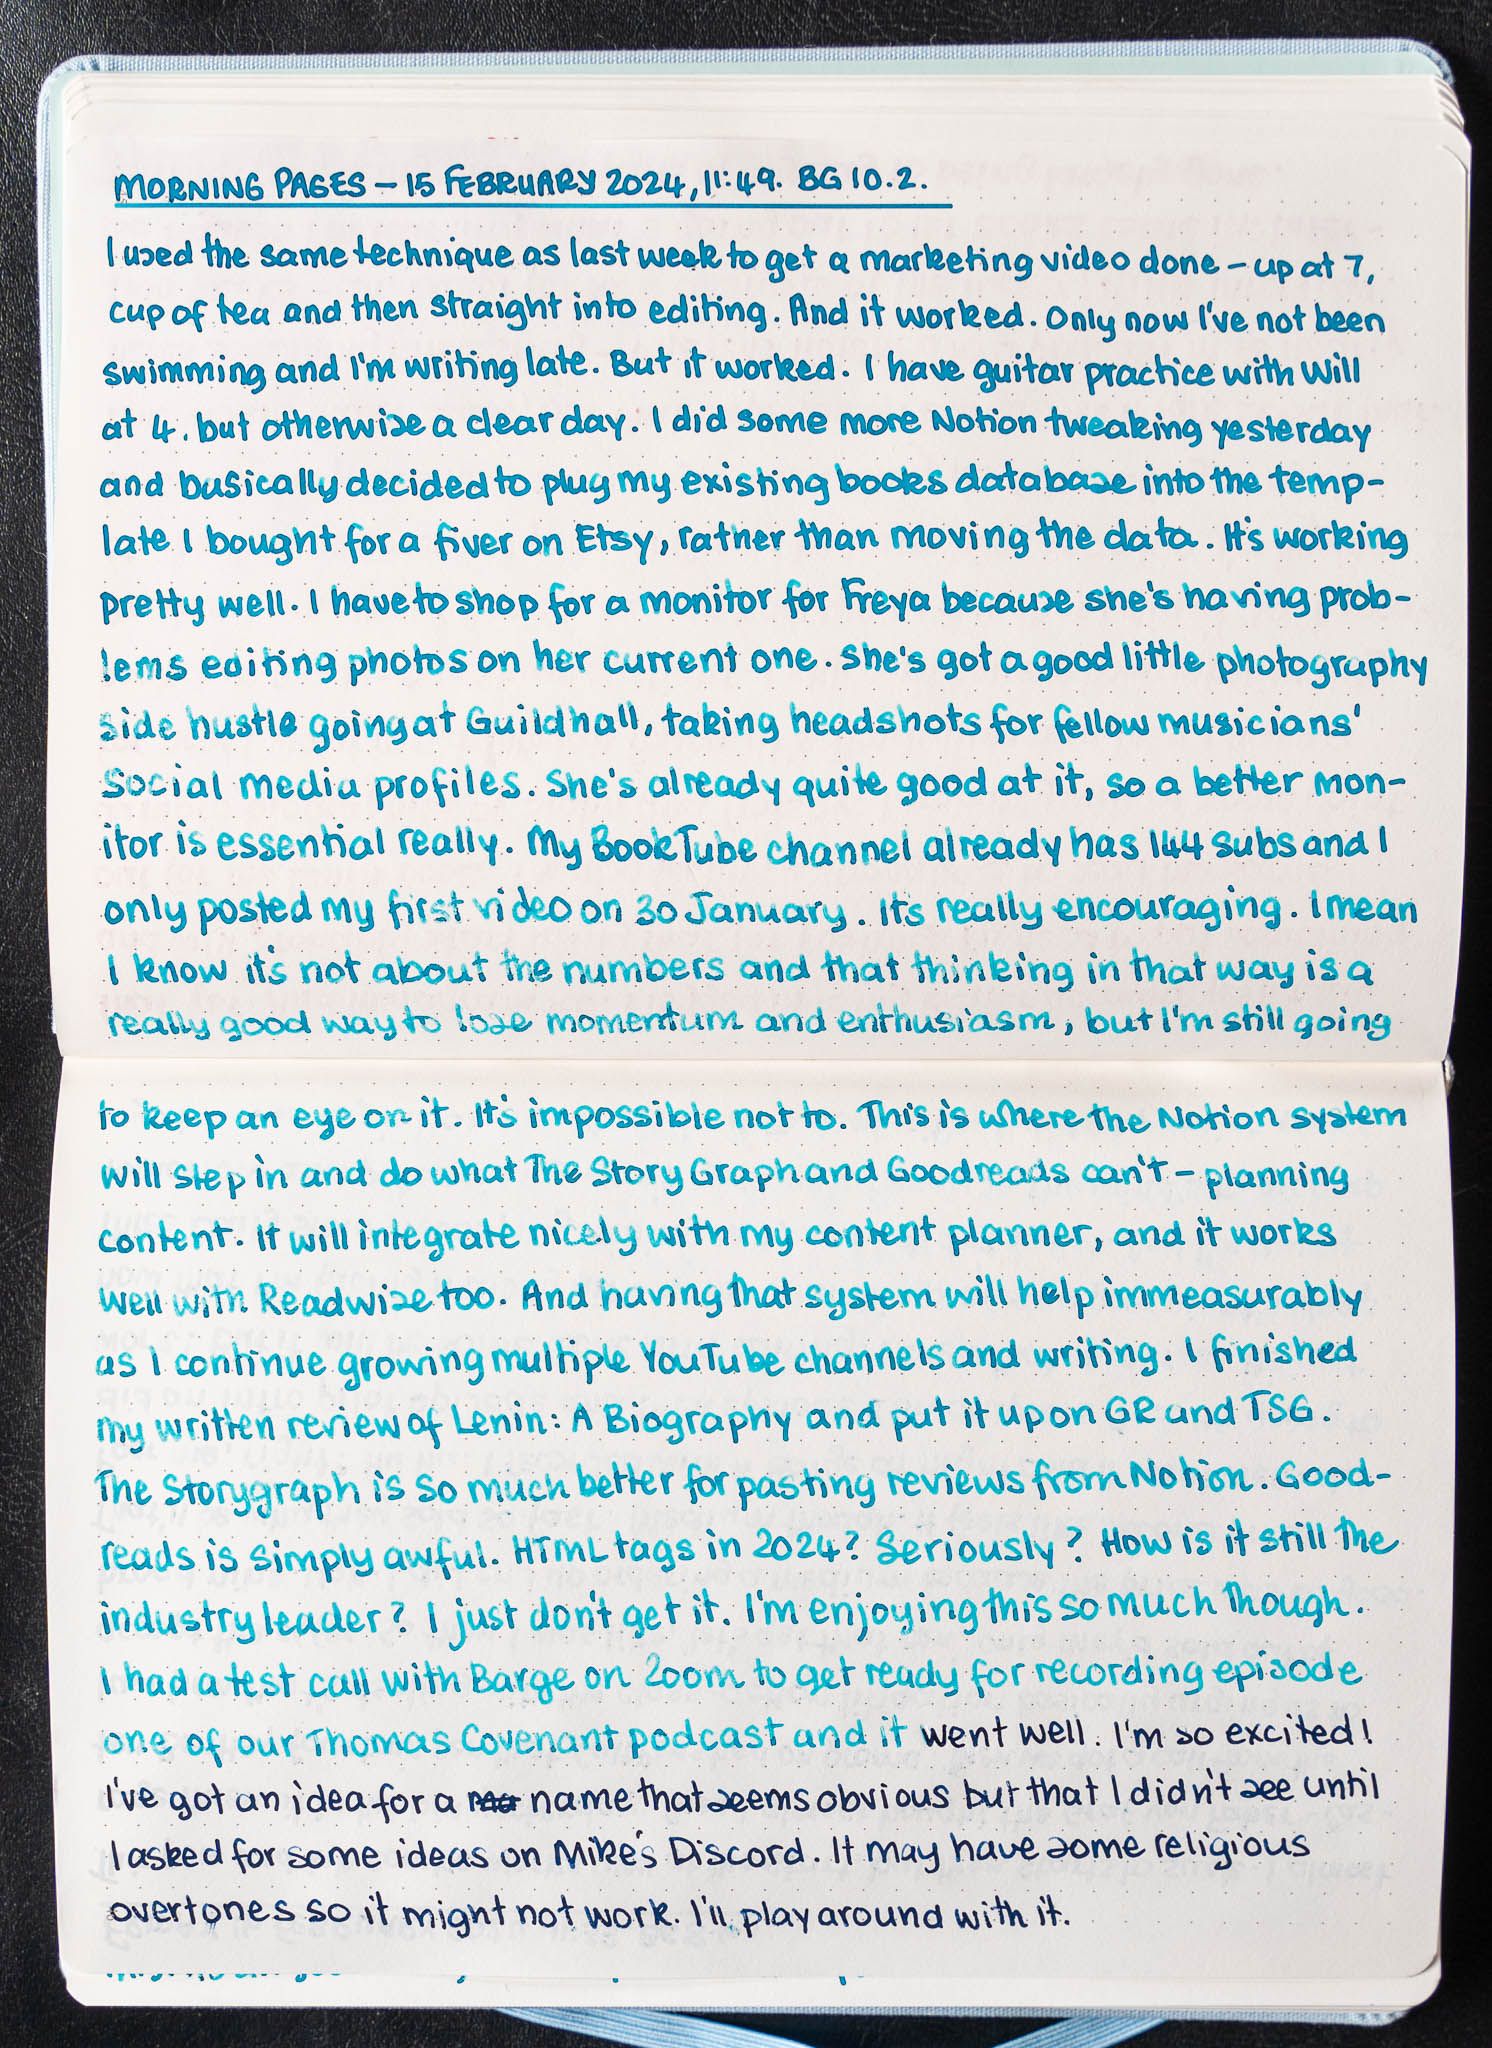 MORNING PAGES – 15 FEBRUARY 2024, 11:49. BG 10.2.
I used the same technique as last week to get a marketing video done – up at 7,
cup of tea and then straight into editing. And it worked. Only now I've not been
swimming and I'm writing late. But it worked. I have guitar practice with Will
at 4. but otherwise a clear day. I did some more Notion tweaking yesterday
and basically decided to plug my existing books database into the temp-
late I bought for a fiver on Etsy, rather than moving the data. It's working
pretty well. I have to shop for a monitor for Freya because she's having prob-
lems editing photos on her current one. She's got a good little photography
side hustle going at Guildhall, taking headshots for fellow musicians'
social media profiles. She's already quite good at it, so a better mon-
itor is essential really. My BookTube channel already has 144 subs and I
only posted my first video on 30 January. It's really encouraging. I mean
I know it's not about the numbers and that thinking in that way is a
really good way to lose momentum and enthusiasm, but I'm still going
to keep an eye on it. It's impossible not to. This is where the Notion system
will step in and do what The Story Graph and Goodreads can't – planning
content. It will integrate nicely with my content planner, and it works
well with Readwise too. And having that system will help immeasurably
as I continue growing multiple YouTube channels and writing. I finished
my written review of Lenin: A Biography and put it up on GR and TSG.
The Storygraph is so much better for pasting reviews from Notion. Good-
reads is simply awful. HTML tags in 2024? Seriously? How is it still the
industry leader? I just don't get it. I'm enjoying this so much though.
I had a test call with Barge on Zoom to get ready for recording episode
one of our Thomas Covenant podcast and it went well. I'm so excited!
I've got an idea for a name that seems obvious but that I didn't see until
I asked for some ideas on Mike's Discord. It may have some religious
overtones so it might not work. I'll play around with it.